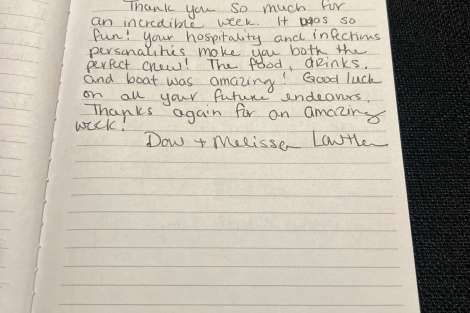 Thank you so much for
an incredible week. It was so
fun! Your hospitality and infectious
personalities make you both the
perfect crew! The food, drinks,
and boat was amazing! Good luck
on all your future endeavors.
Thanks again for an amazing
week.
Dow + Melissa